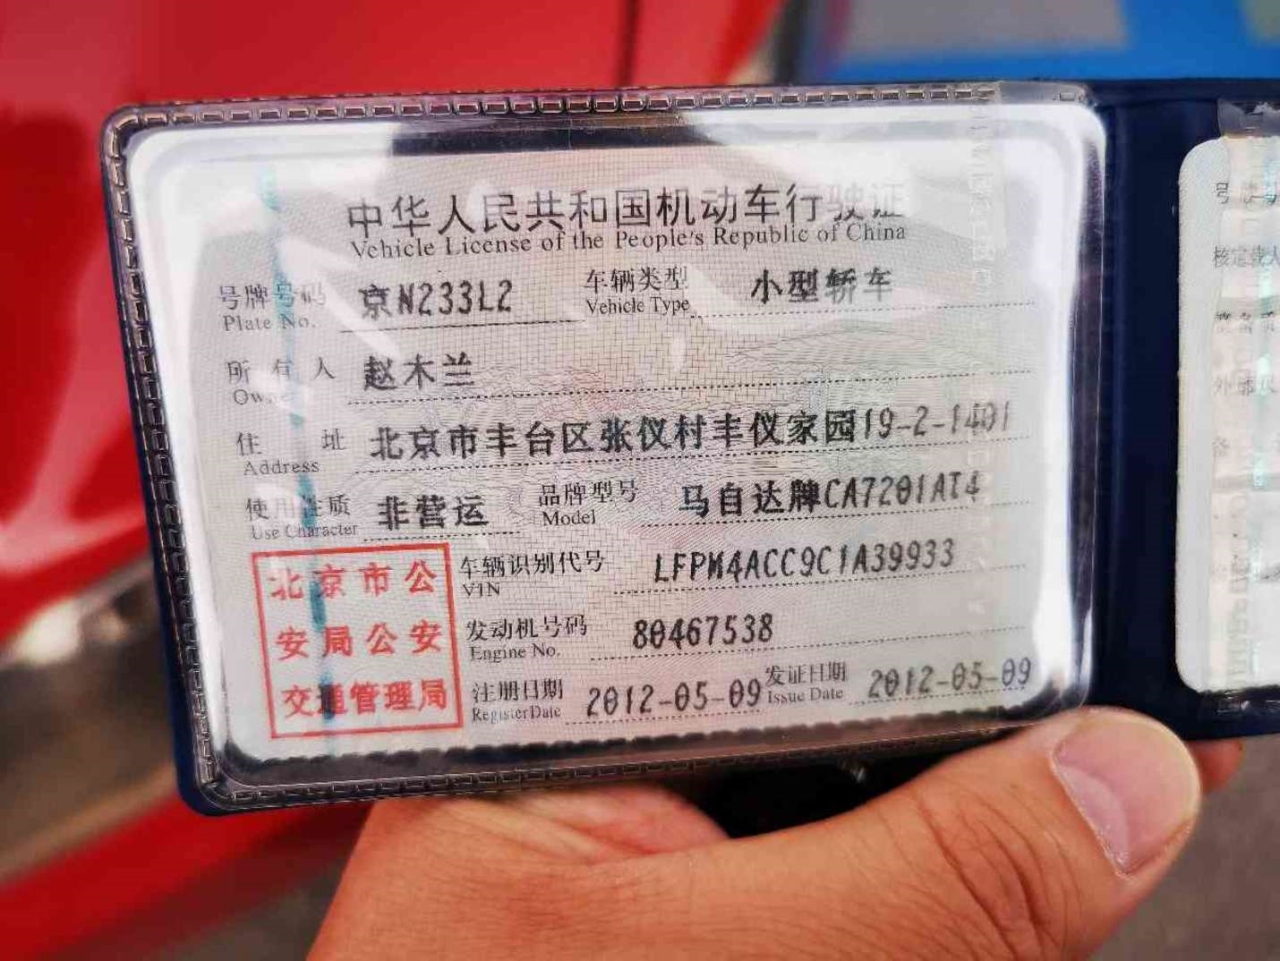 中华人民共和国机动车行驶证
Vehicle License of the People's Republic of China
号牌号码 京N233L2 车辆类型 小型轿车
Plate No. Vehicle Type
所有人 赵木兰
Owner
住址 北京市丰台区张仪村丰仪家园19-2-1401
Address
使用性质 非营运 品牌型号 马自达牌CA7201AT4
Use Character Model
北京市公
安局公安
交通管理局
车辆识别代号 LFPM4ACC9C1A39933
VIN
发动机号码 80467538
Engine No.
注册日期 2012-05-09 发证日期 2012-05-09
Register Date Issue Date
号牌
核定载人
外廓